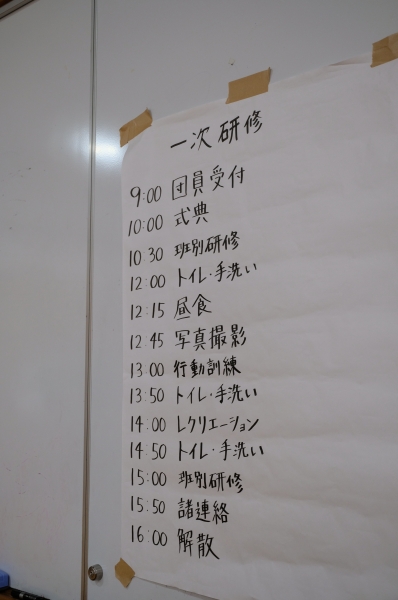 一次研修
9:00 団員受付
10:00 式典
10:30 班別研修
12:00 トイレ・手洗い
12:15 昼食
12:45 写真撮影
13:00 行動訓練
13:50 トイレ・手洗い
14:00 レクリエーション
14:50 トイレ・手洗い
15:00 班別研修
15:50 諸連絡
16:00 解散